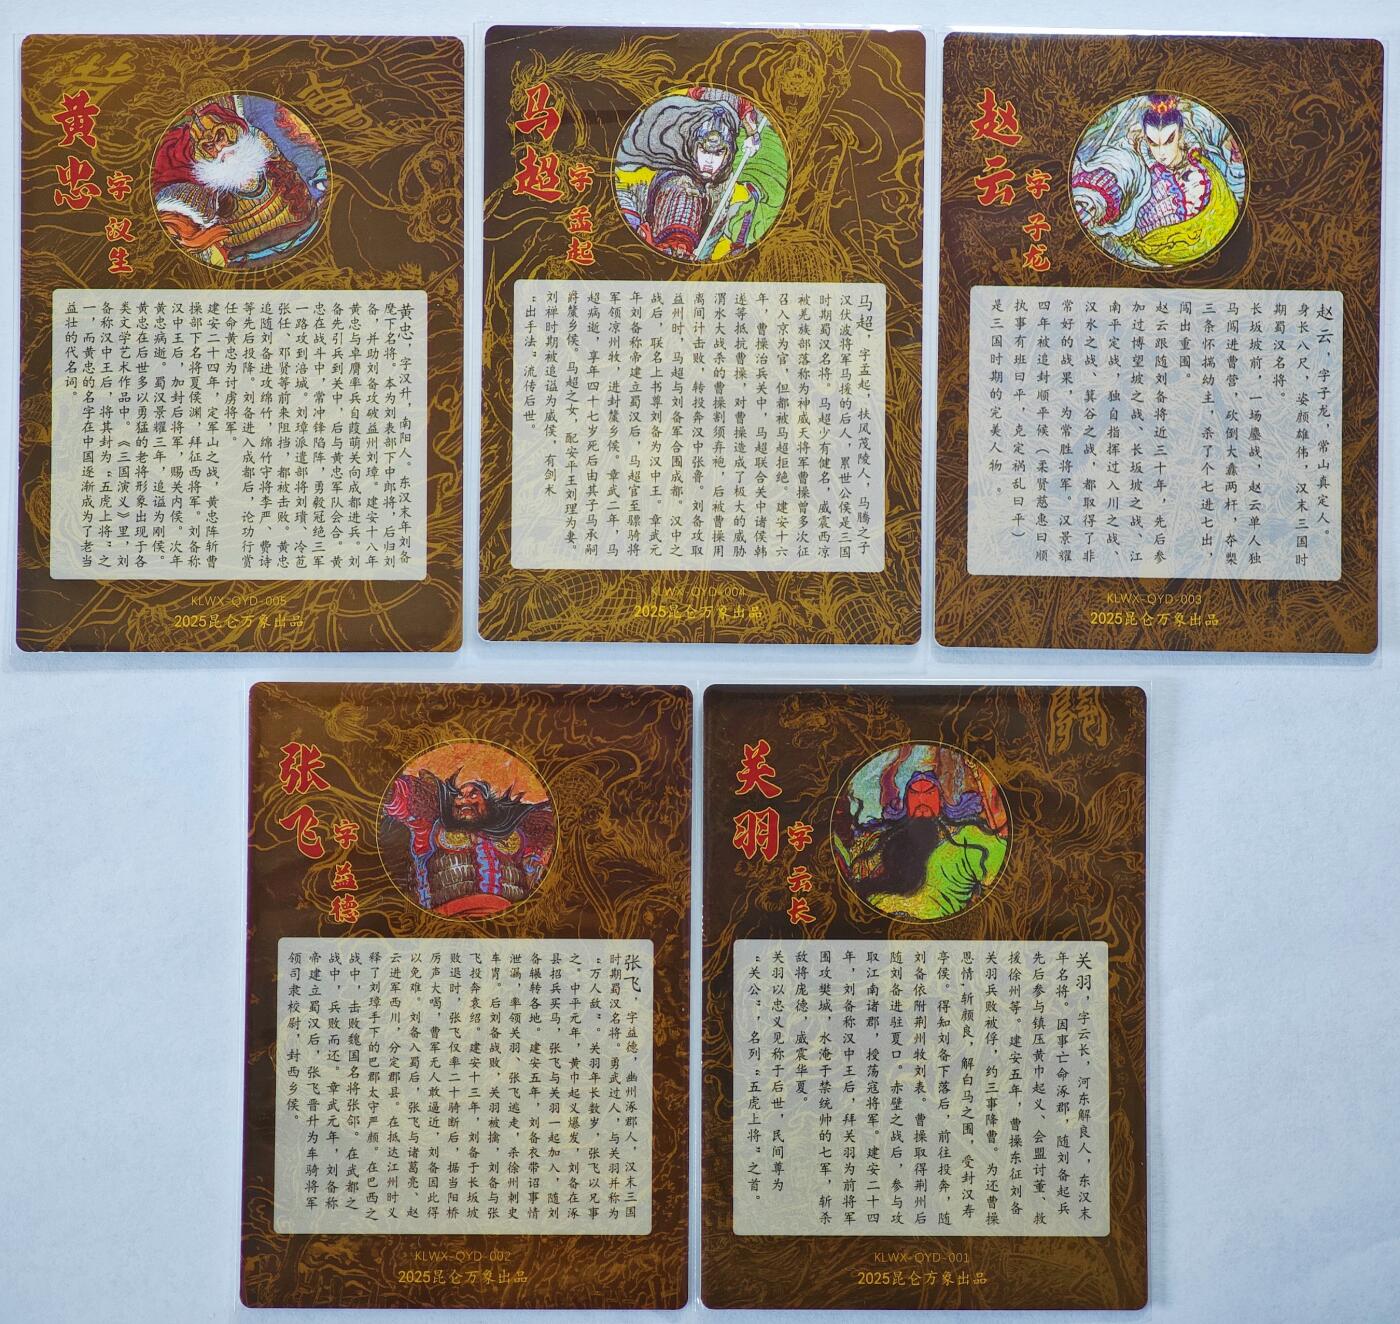 黄忠
字
汉生
黄忠，字汉升，南阳人。东汉末年刘备
麾下名将。本为刘表部下中郎将，后归刘
备，并助刘备攻破益州刘璋。建安十八年
黄忠与卓膺率兵自葭萌关向成都进兵。刘
备先引兵到关中，后与黄忠军队会合。黄
忠在战斗中，常冲锋陷阵，勇毅冠绝三军
一路攻到涪城。刘璋派遣部将刘璝、冷苞
张任、邓贤等前来阻挡，都被击败。黄忠
追随刘备进攻绵竹，绵竹守将李严、费诗
等先后投降。刘备进入成都后，论功行赏
任命黄忠为讨虏将军。
建安二十四年，定军山之战，黄忠阵斩曹
操部下名将夏侯渊，拜征西将军。刘备称
汉中王后，加封后将军，赐关内侯。次年
黄忠病逝。蜀汉景耀三年，追谥为刚侯。
黄忠在后世多以勇猛的老将形象出现于各
类文学艺术作品中。《三国演义》里，刘
备称汉中王后，将其封为“五虎上将”之
一，而黄忠的名字在中国逐渐成为了老当
益壮的代名词。
KLWX-QYD-005
2025昆仑万象出品
马超
字
孟起
马超，字孟起，扶风茂陵人，马腾之子
汉伏波将军马援的后人，累世公侯是三国
时期蜀汉名将。马超少有健名，威震西凉
被羌族部落称为神威天将军曹操曾多次征
召入京为官，但都被马超拒绝。建安十六
年，曹操治兵关中，马超联合关中诸侯韩
遂等抵抗曹操，对曹操造成了极大的威胁
渭水大战杀的曹操割须弃袍，后被曹操用
离间计击败，转投奔汉中张鲁。刘备攻取
益州时，马超与刘备军合围成都。汉中之
战后，联名上书尊刘备为汉中王。章武元
年刘备称帝建立蜀汉后，马超官至骠骑将
军领凉州牧，进封斄乡侯。章武二年，马
超病逝，享年四十七岁死后由其子马承嗣
爵斄乡侯。马超之女，配安平王刘理为妻。
刘禅时期被追谥为威侯，有剑术
“出手法”流传后世。
KLWX-QYD-004
2025昆仑万象出品
赵云
字
子龙
赵云，字子龙，常山真定人。
身长八尺，姿颜雄伟，汉末三国时
期蜀汉名将。
长坂坡前，一场鏖战，赵云单人独
马闯进曹营，砍倒大纛两杆，夺槊
三条怀揣幼主，杀了个七进七出，
闯出重围。
赵云跟随刘备将近三十年，先后参
加过博望坡之战、长坂坡之战、江
南平定战，独自指挥过入川之战、
汉水之战、箕谷之战，都取得了非
常好的战果，为常胜将军。汉景耀
四年被追封顺平候（柔贤慈惠曰顺
执事有班曰平，克定祸乱曰平）
是三国时期的完美人物。
KLWX-QYD-003
2025昆仑万象出品
张飞
字
益德
张飞，字益德，幽州涿郡人，汉末三国
时期蜀汉名将。勇武过人，与关羽并称为
“万人敌”。关羽年长数岁，张飞以兄事
之。中平元年，黄巾起义爆发，刘备在涿
县招兵买马，张飞与关羽一起加入，随刘
备辗转各地。建安五年，刘备衣带诏事情
泄漏，率领关羽、张飞逃走，杀徐州刺史
车胄。后刘备战败，关羽被擒，刘备与张
飞投奔袁绍。建安十三年，刘备于长坂坡
败退时，张飞仅率二十骑断后，据当阳桥
厉声大喝，曹军无人敢逼近，刘备因此得
以免难。刘备入蜀后，张飞与诸葛亮、赵
云进军西川，分定郡县。在抵达江州时义
释了刘璋手下的巴郡太守严颜。在巴西之
战中，击败魏国名将张郃。在武都之
战中，兵败而还。章武元年，刘备称
帝建立蜀汉后，张飞晋升为车骑将军
领司隶校尉，封西乡侯。
KLWX-QYD-002
2025昆仑万象出品
關
关羽
字
云长
关羽，字云长，河东解良人，东汉末
年名将。因事亡命涿郡，随刘备起兵
先后参与镇压黄巾起义、会盟讨董、救
援徐州等。建安五年，曹操东征刘备
关羽兵败被俘，约三事降曹。为还曹操
恩情，斩颜良，解白马之围，受封汉寿
亭侯。得知刘备下落后，前往投奔，随
刘备依附荆州牧刘表。曹操取得荆州后
随刘备进驻夏口。赤壁之战后，参与攻
取江南诸郡，授荡寇将军。建安二十四
年，刘备称汉中王后，拜关羽为前将军
围攻樊城，水淹于禁统帅的七军，斩杀
敌将庞德，威震华夏。
关羽以忠义见称于后世，民间尊为
“关公”，名列“五虎上将”之首。
KLWX-QYD-001
2025昆仑万象出品